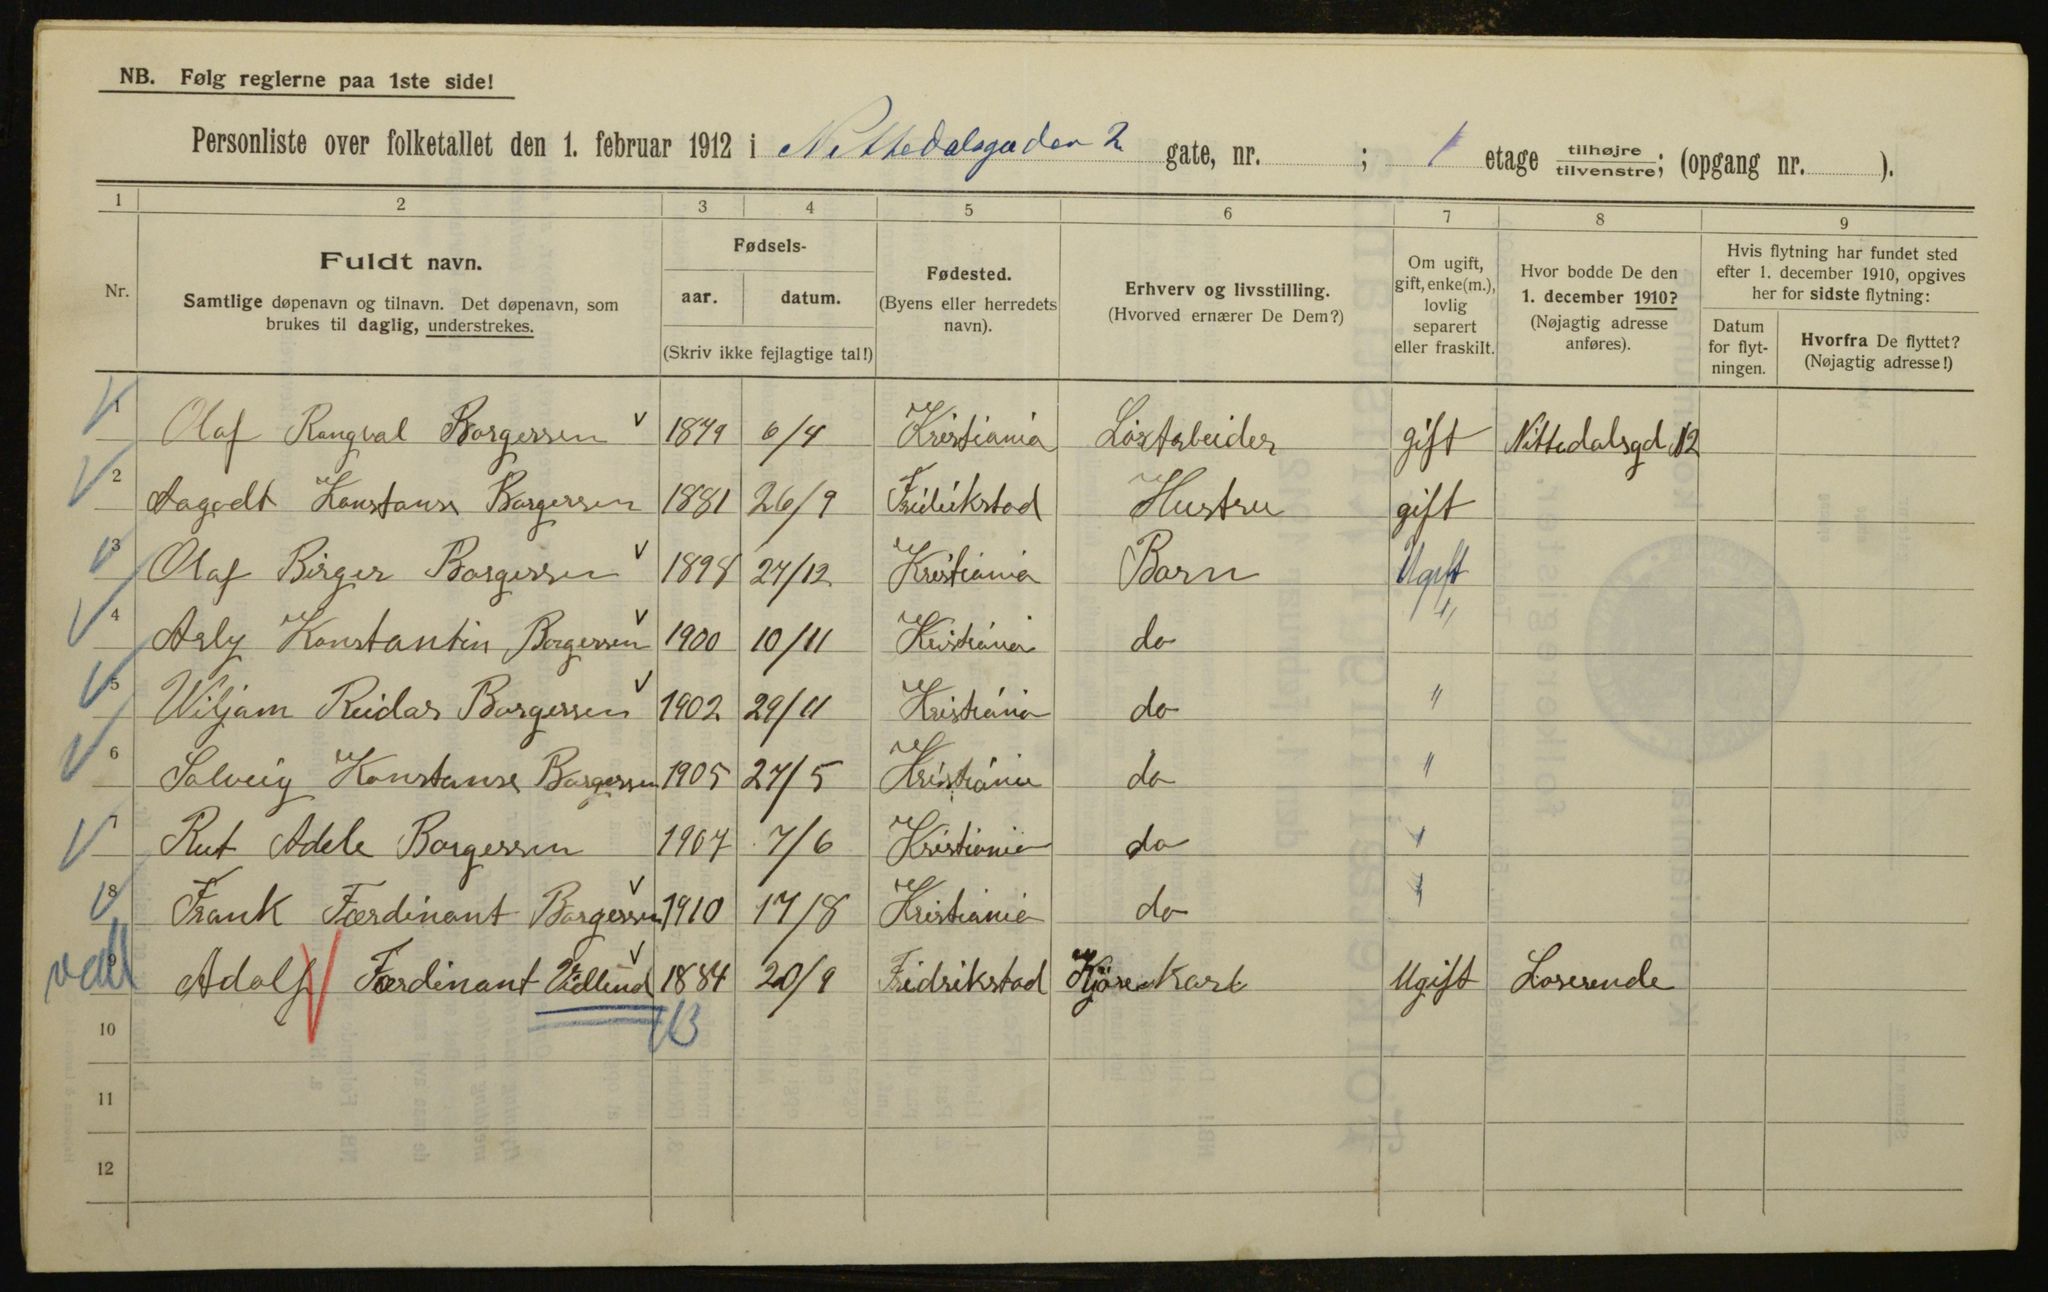 NB. Følg reglerne paa 1ste side!
Personliste over folketallet den 1. februar 1912 i Nittedalsgaden 2 gate, nr. ; 1 etage tilhøjre/tilvenstre; (opgang nr. ).
1 2 3 4 5 6 7 8 9
Nr.
Fuldt navn.
Samtlige døpenavn og tilnavn. Det døpenavn, som
brukes til daglig, understrekes.
Fødsels-
aar. datum.
(Skriv ikke fejlagtige tal!)
Fødested.
(Byens eller herredets
navn).
Erhverv og livsstilling.
(Hvorved ernærer De Dem?)
Om ugift,
gift, enke(m.),
lovlig
separert
eller fraskilt.
Hvor bodde De den
1. december 1910?
(Nøjagtig adresse
anføres).
Hvis flytning har fundet sted
efter 1. december 1910, opgives
her for sidste flytning:
Datum
for flyt-
ningen.
Hvorfra De flyttet?
(Nøjagtig adresse!)
1 Olaf Rangval Borgersen 1879 6/4 Kristiania Løsarbeider gift Nittedalsgd 12
2 Aagodt Konstanse Borgersen 1881 26/9 Fridrikstad Hustru gift
3 Olaf Birger Borgersen 1898 27/12 Kristiania Barn Ugift
4 Arly Konstantin Borgersen 1900 10/11 Kristiania do "
5 Wiljam Reidar Borgersen 1902 29/11 Kristiania do "
6 Solveig Konstanse Borgersen 1905 27/5 Kristiania do "
7 Rut Adele Borgersen 1907 7/6 Kristiania do "
8 Frank Færdinant Borgersen 1910 17/8 Kristiania do "
9 Adolf Færdinant Vidlund 1884 20/9 Fridrikstad Kjørekarl Ugift Loserende
10
11
12